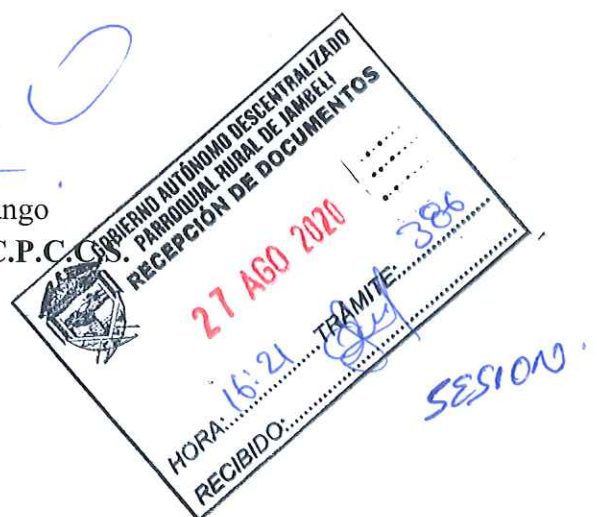 ango
C.P.C.C.S.
GOBIERNO AUTÓNOMO DESCENTRALIZADO
PARROQUIAL RURAL DE JAMBELI
RECEPCIÓN DE DOCUMENTOS
27 AGO 2020
HORA: 16:21 TRÁMITE: 386
RECIBIDO:
SESION.